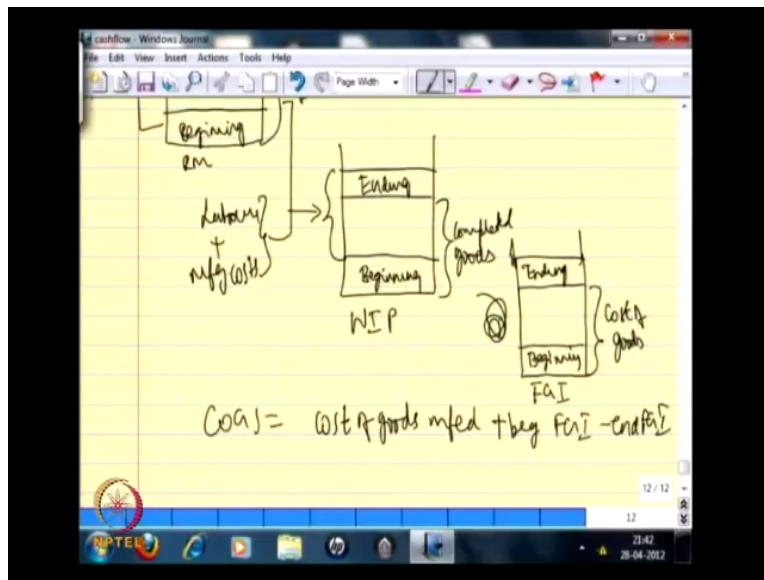 cashflow - Windows Journal
File Edit View Insert Actions Tools Help
Page Width
Begining
RM
Labour
+
mfg costs
Ending
Beginning
WIP
Completed
goods
Ending
Begining
FGI
Cost of
goods
COGS = Cost of goods mfed + beg FGI - end FGI
12 / 12
12
NPTEL
21:42
28-04-2012